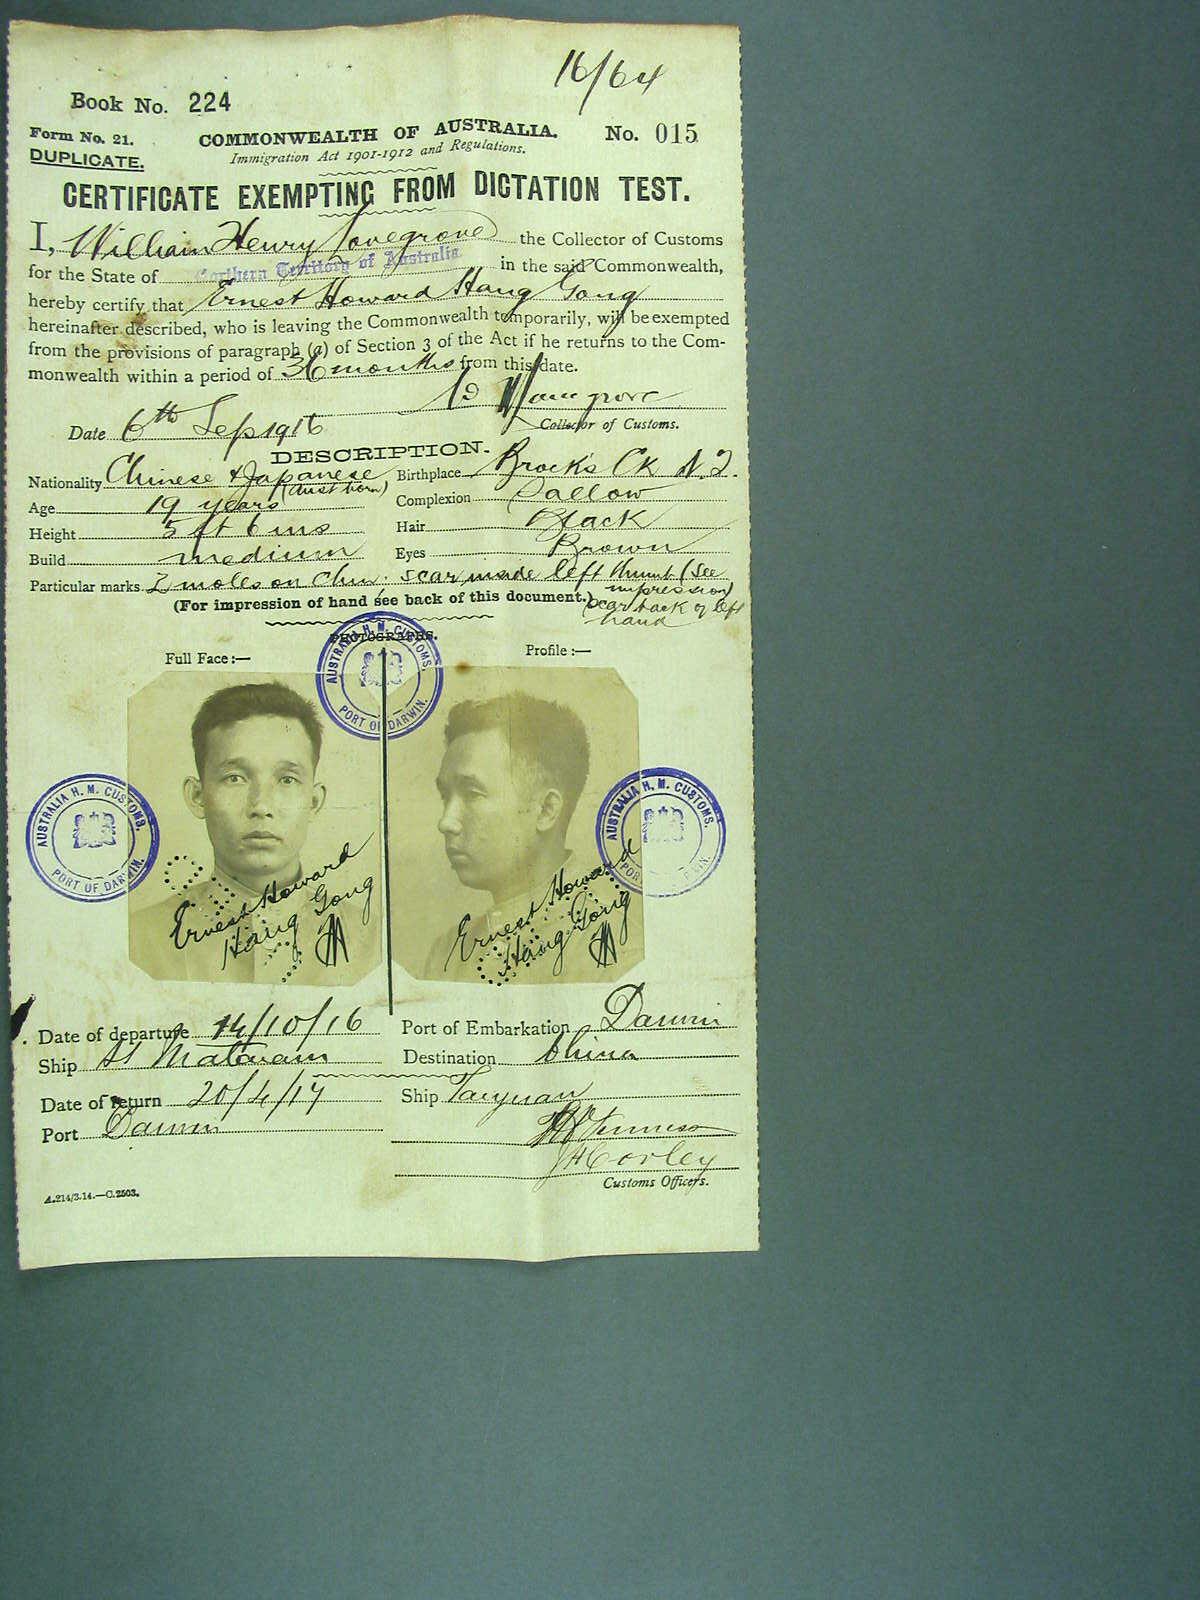 16/64
Book No. 224
Form No. 21. COMMONWEALTH OF AUSTRALIA. No. 015
DUPLICATE. Immigration Act 1901-1912 and Regulations.
CERTIFICATE EXEMPTING FROM DICTATION TEST.
I, William Henry Lovegrove the Collector of Customs
for the State of Northern Territory of Australia in the said Commonwealth,
hereby certify that Ernest Howard Hang Gong
hereinafter described, who is leaving the Commonwealth temporarily, will be exempted
from the provisions of paragraph (a) of Section 3 of the Act if he returns to the Com-
monwealth within a period of 36 months from this date.
Lovegrove
Date 6th Sep 1916 Collector of Customs.
DESCRIPTION.
Nationality Chinese & Japanese (Aust born) Birthplace Brock's Ck N.T.
Age 19 years Complexion Sallow
Height 5 ft 6 ins Hair Black
Build medium Eyes Brown
Particular marks 2 moles on chin. scar inside left thumb (see impression) scar back of left hand
(For impression of hand see back of this document.)
PHOTOGRAPHS.
Full Face :— Profile :—
AUSTRALIA H. M. CUSTOMS. PORT OF DARWIN.
AUSTRALIA H. M. CUSTOMS. PORT OF DARWIN.
AUSTRALIA H. M. CUSTOMS. PORT OF DARWIN.
Ernest Howard
Hang Gong
Ernest Howard
Hang Gong
Date of departure 14/10/16 Port of Embarkation Darwin
Ship SS Mataram Destination China
Date of return 20/4/17 Ship Taiyuan
Port Darwin
JHCorley
Customs Officers.
A.214/3.14.—C.2503.